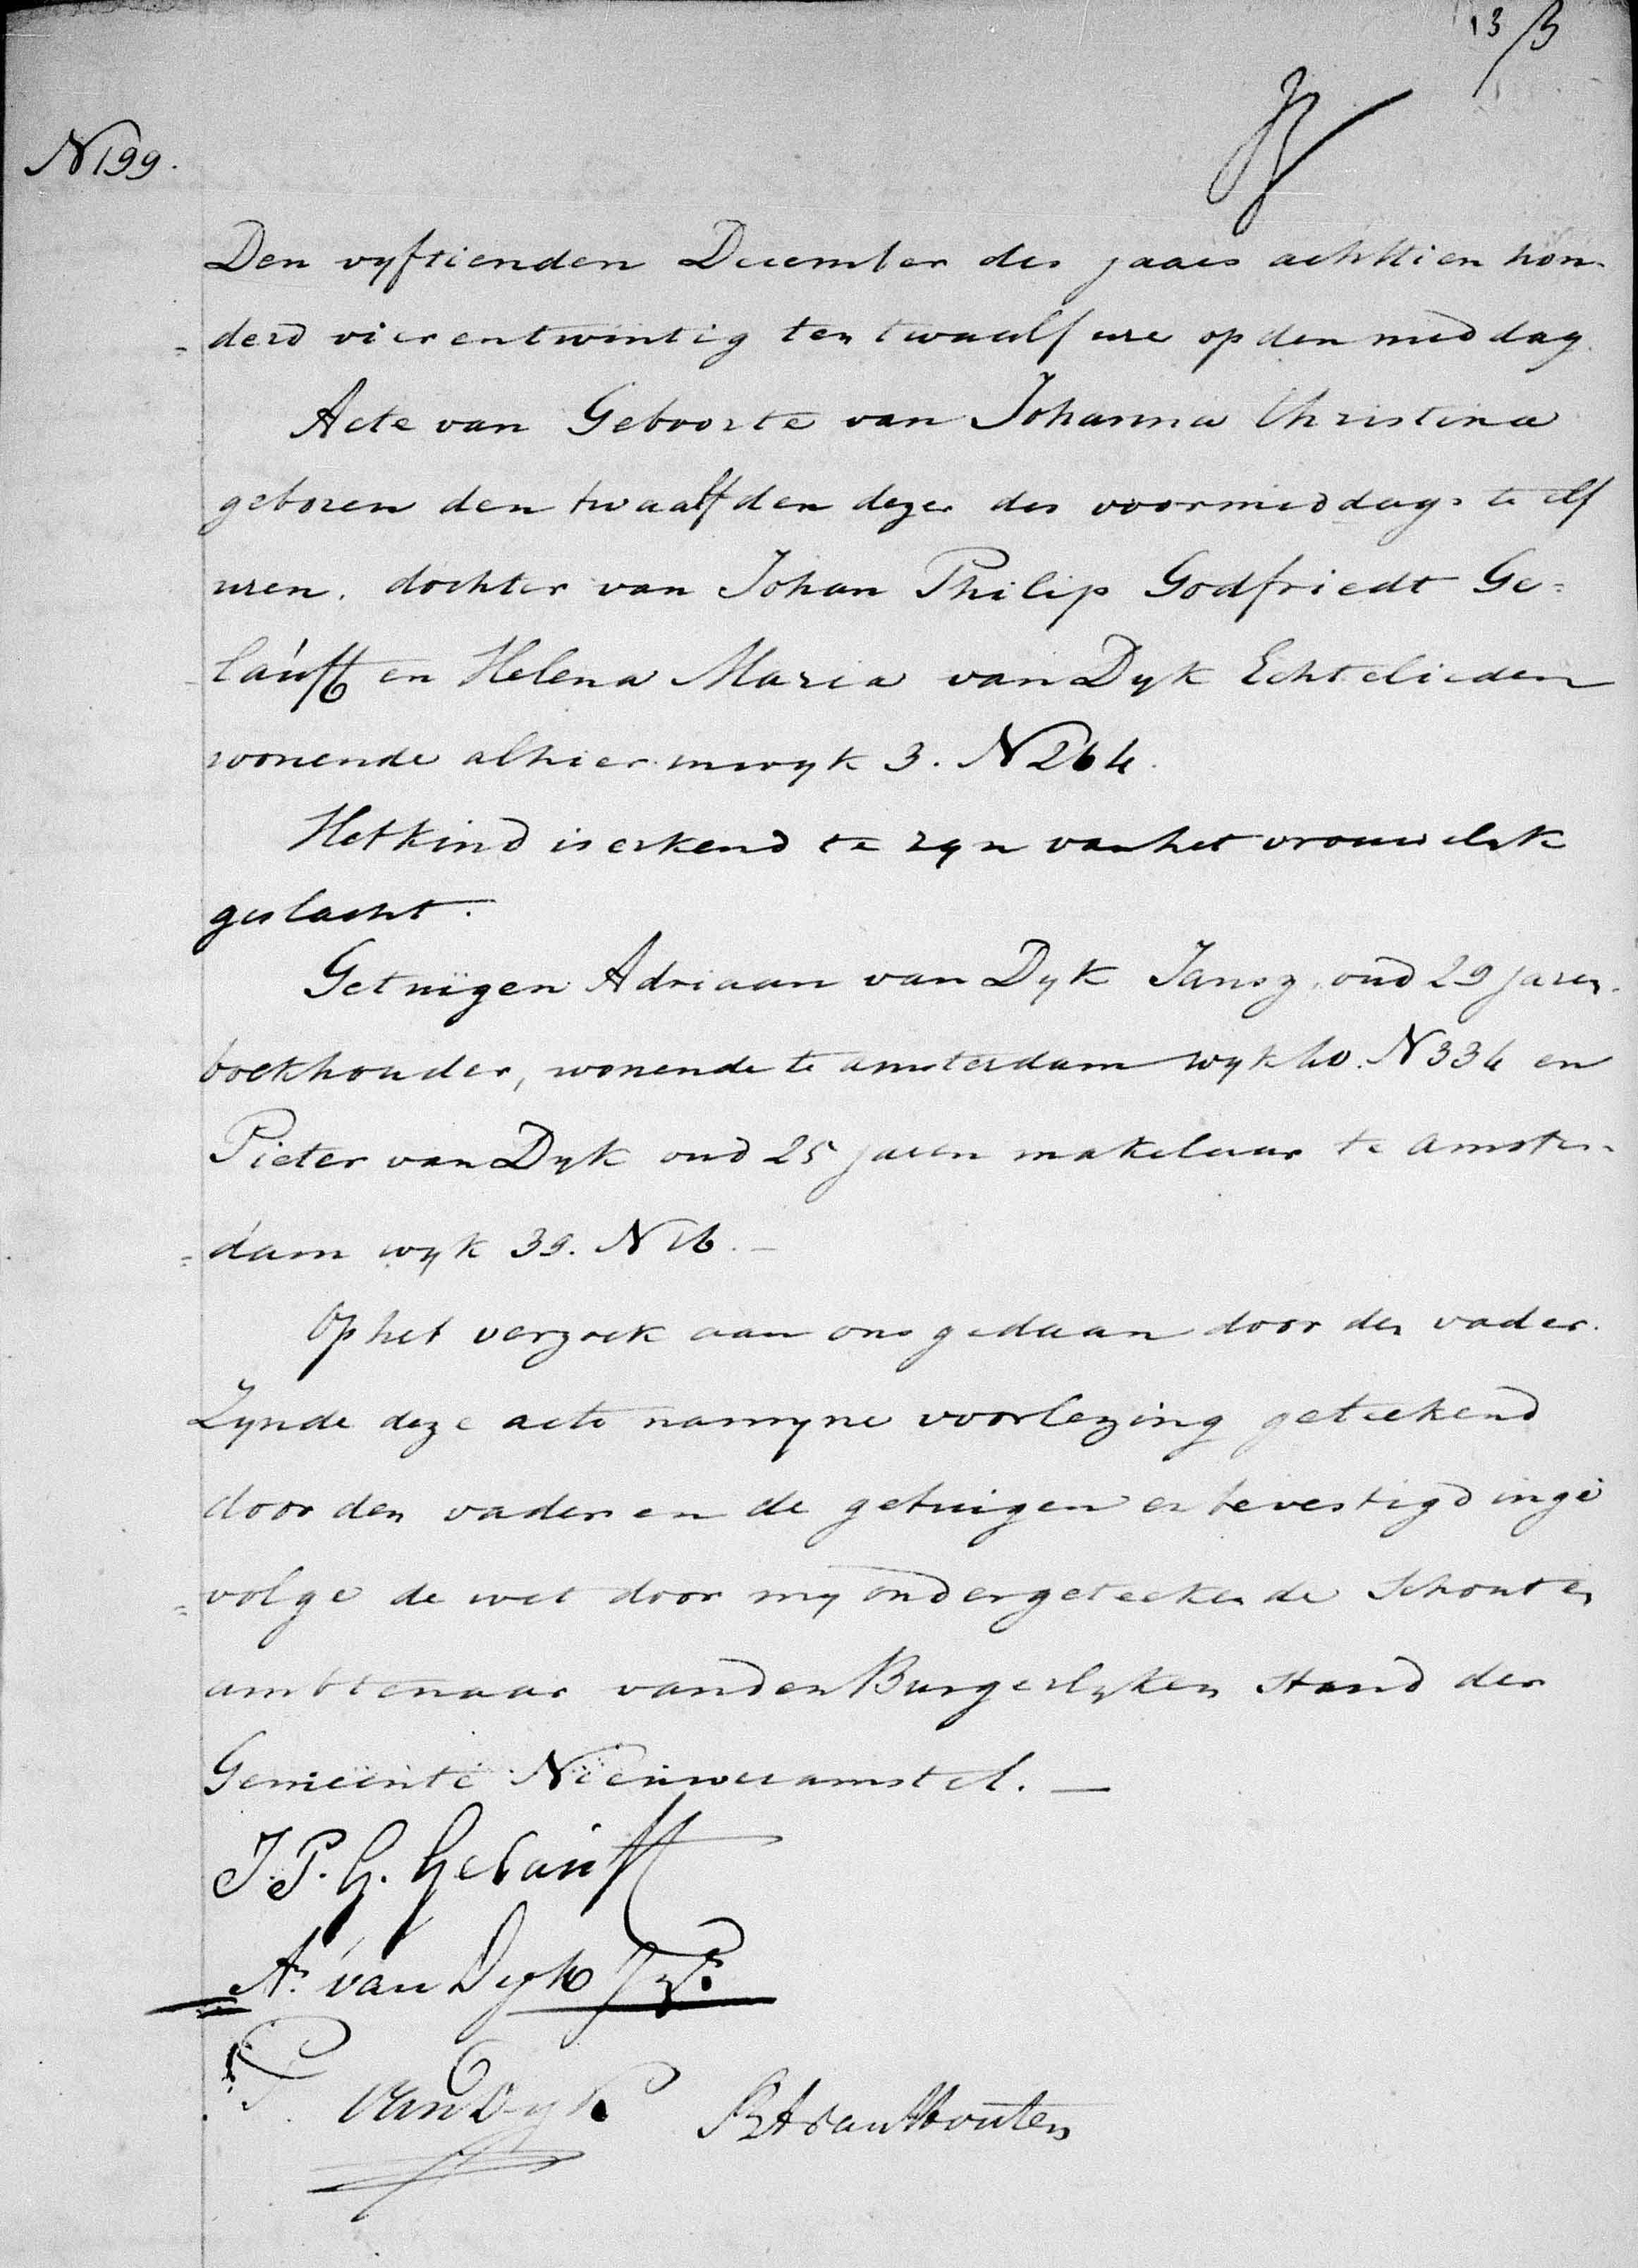 13/3
N 199.
Den vyftienden December des jaars achttien hon-
= derd vierentwintig ten twaalf ure op den middag.
Acte van Geboorte van Johanna Christina
geboren den twaalfden dezer des voormiddags te elf
uren. dochter van Johan Philip Godfriedt Ge=
lauft en Helena Maria van Dyk Echtelieden
wonende alhier in wyk 3. N 264.
Het kind is erkend te zyn van het vrouwelyk
geslacht.
Getuigen Adriaan van Dyk Jansz, oud 29 jaren.
boekhouder, wonende te amsterdam wyk 40. N 334 en
Pieter van Dyk oud 25 jaren makelaar te amster-
= dam wyk 39. N 16. —
Op het verzoek aan ons gedaan door den vader.
Zynde deze acte na myne voorlezing geteekend
door den vader en de getuigen en bevestigd inge
= volge de wet door my ondergeteekende Schout en
ambtenaar van den Burgerlyken Stand der
Gemeente Nieuweramstel. —
J. P. G. Gelauft
A. van Dyk Jz.
P. van Dyk
van Houten